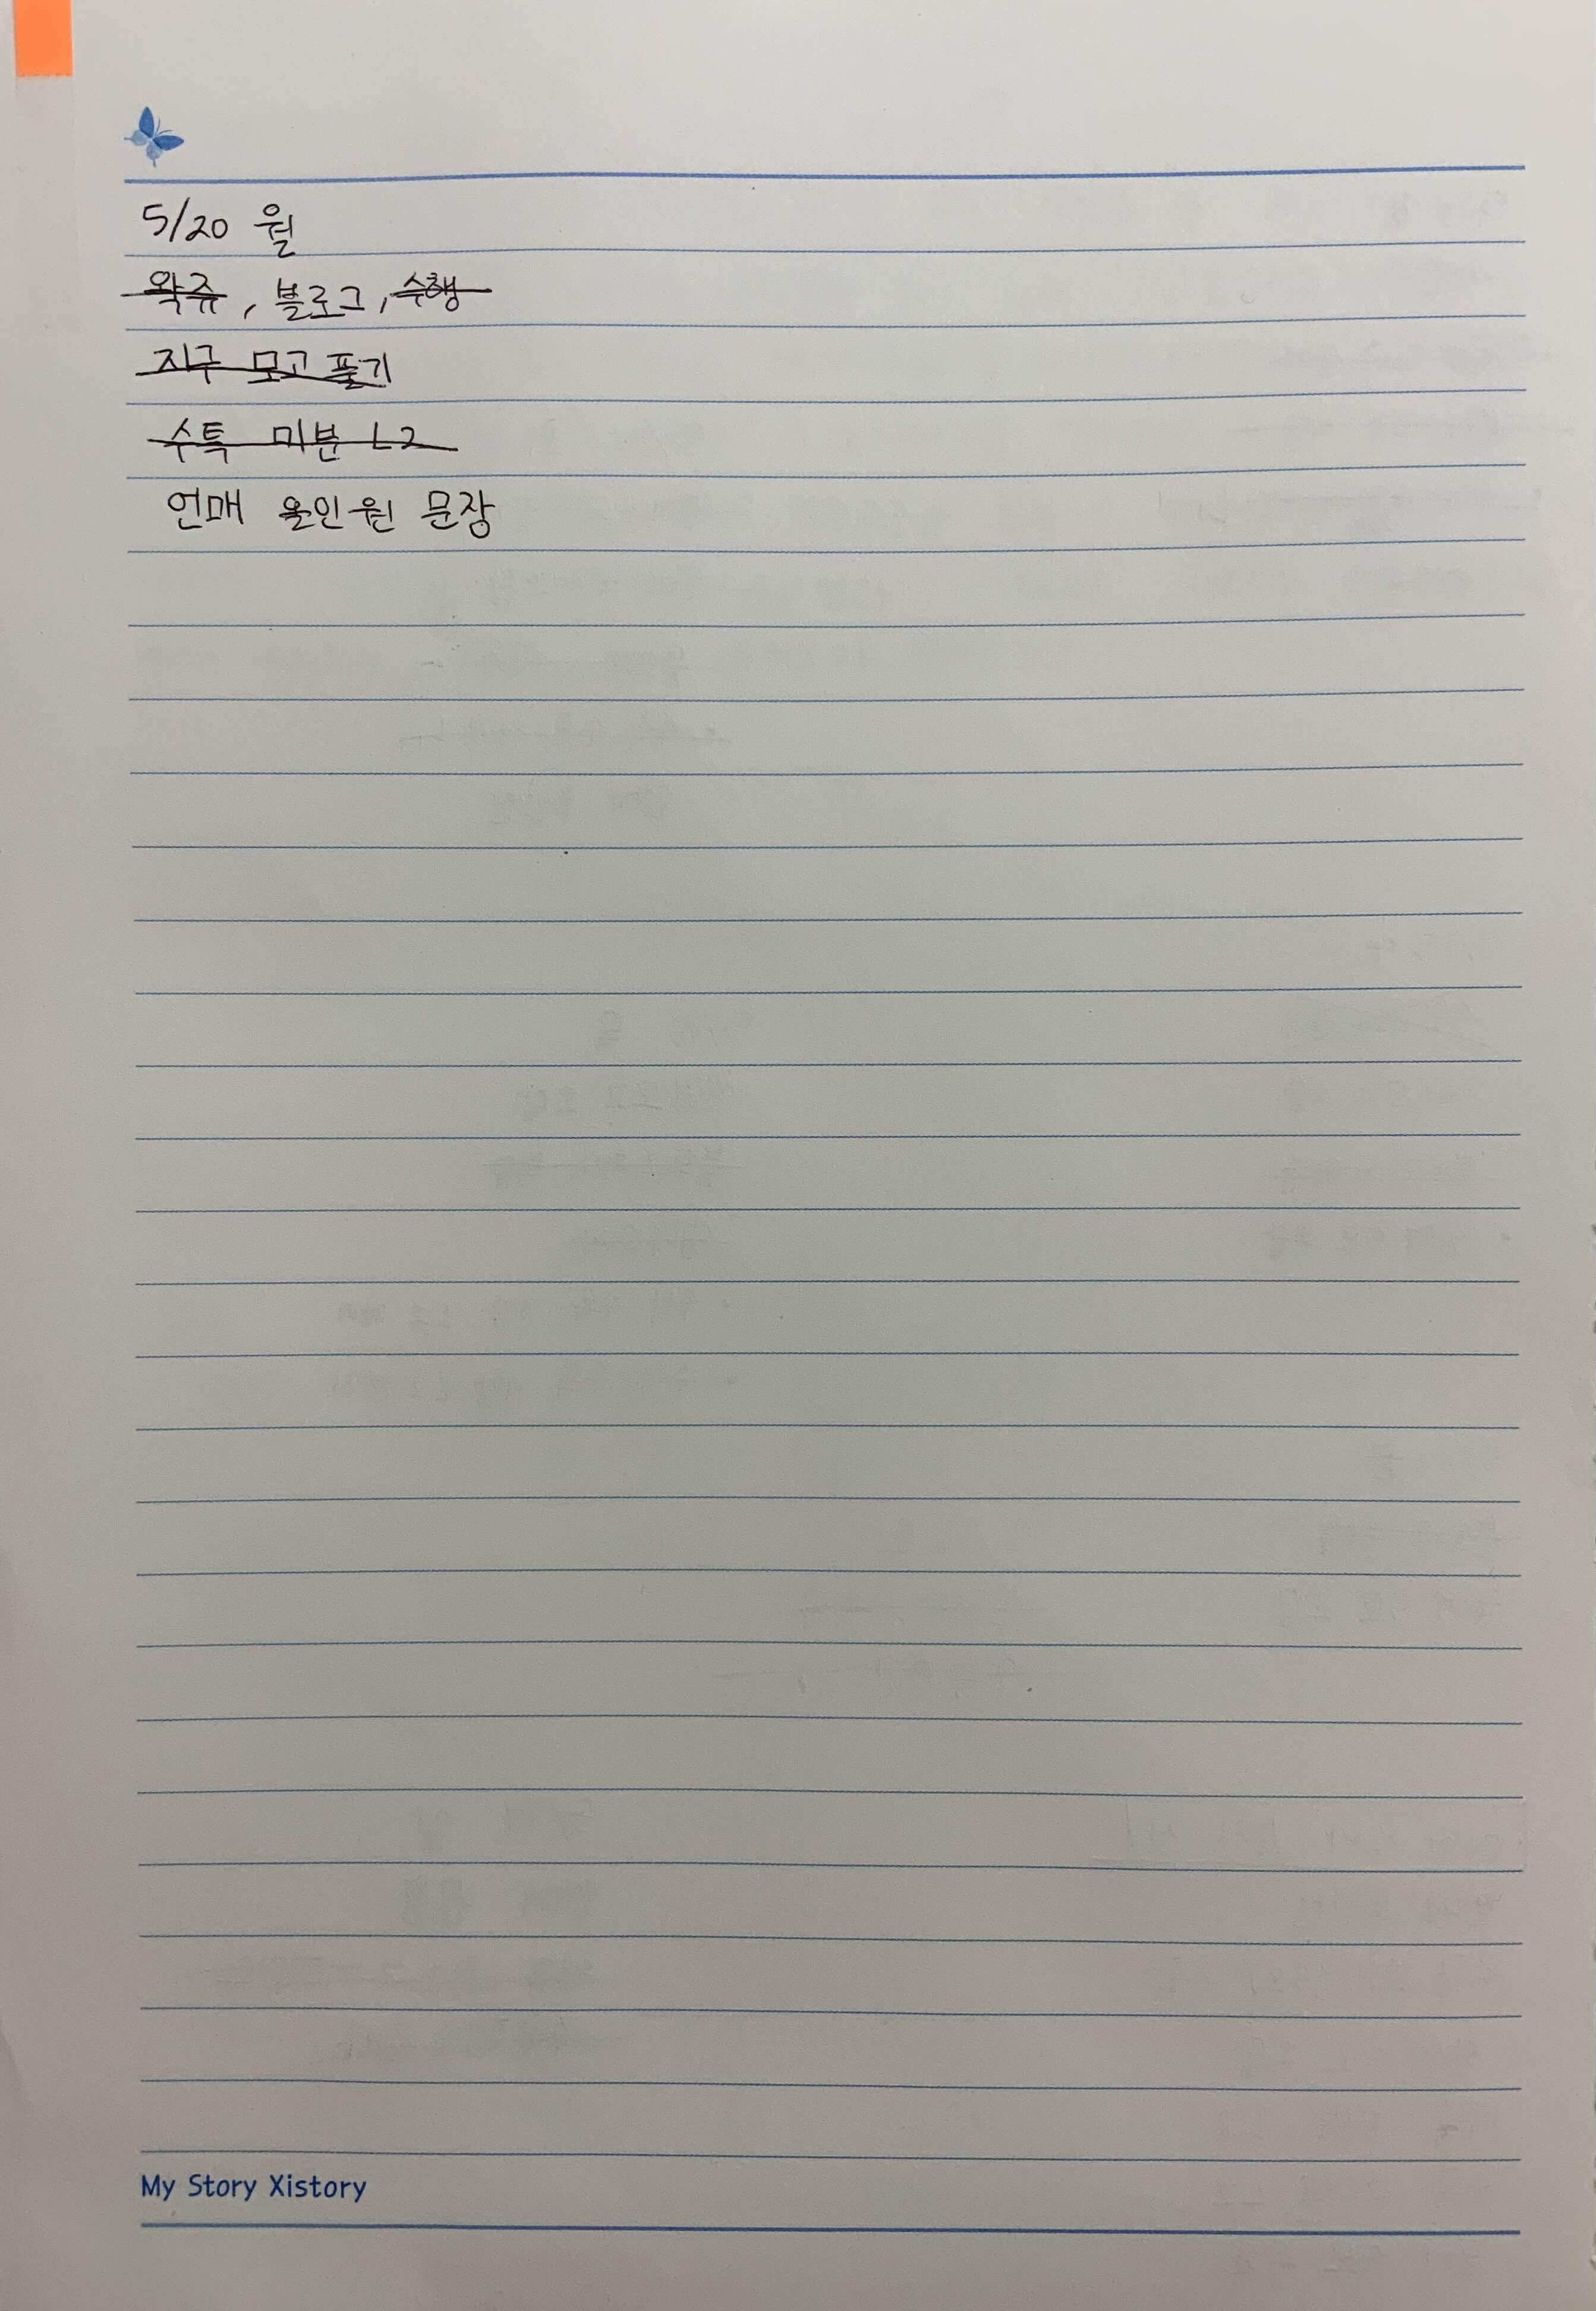 5/20 월
왁쥬, 블로그, 수행
지구 모고 풀기
수특 미분 L2
언매 올인원 문장
My Story Xistory